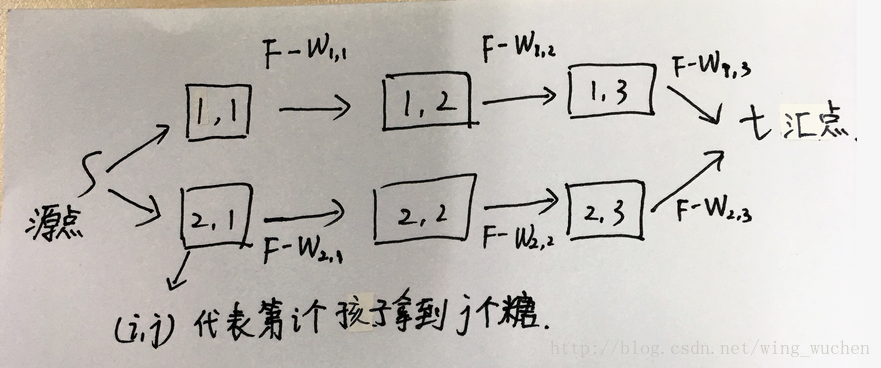 F-W1,1 F-W1,2 F-W1,3
1,1 1,2 1,3
S t 汇点.
源点
2,1 2,2 2,3
F-W2,1 F-W2,2 F-W2,3
(i,j) 代表第i个孩子拿到j个糖.
http://blog.csdn.net/wing_wuchen